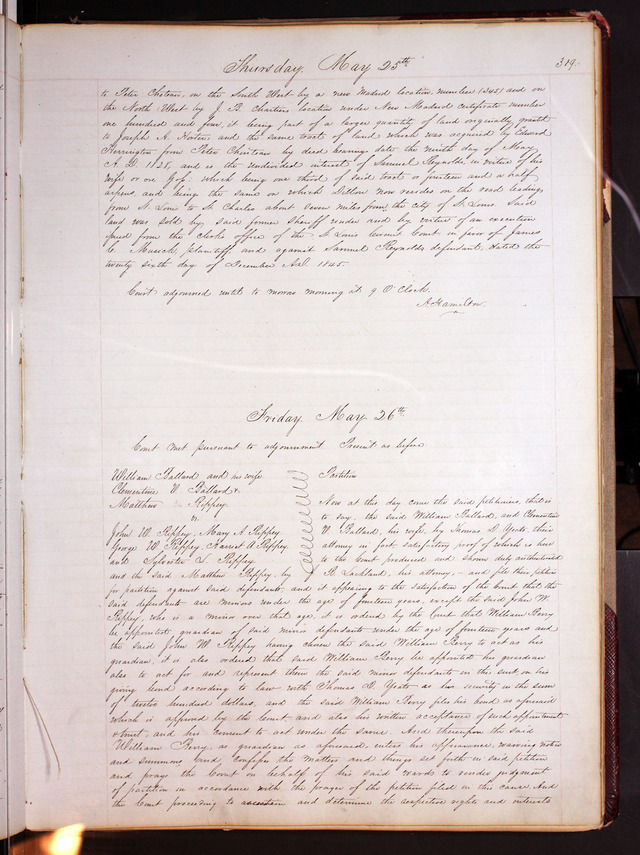 Thursday, May 25th 319.
to Peter Chetran, on the South West by a new Madrid location number (345) and on
the North West by J. R. Chartiers location under New Madrid certificate number
one hundred and four, it being part of a larger quantity of land originally granted
to Joseph A. and the same tract of land which was acquired by Edward
Herrington from Peter by deed bearing date the ninth day of May
A. D. 1828, and is the undivided interest of Samuel Reynolds in virtue of his
wife or one 9th. which being one third of said tract is fourteen and a half
arpens, and being the same on which now resides on the road leading
from St. Louis to St. Charles about seven miles from the city of St. Louis. Said
land was sold by said former Sheriff under and by virtue of an execution
issued from the clerks office of the St. Louis Circuit Court in favor of James
C. Musick, plaintiff, and against Samuel Reynolds defendant, dated the
twenty sixth day of December A.D. 1845.
Court adjourned until to morrow morning at 9 O'Clock.
A Hamilton
Friday, May 26th
Court met pursuant to adjournment Present as before
William Ballard and his wife
Clementine V. Ballard &
Matthew Peppey.
vs
John W. Peppey, Mary A. Peppey
George W. Peppey, Harriet A. Peppey
and Sylvester L. Peppey.
Partition
Now at this day come the said petitioners, that is
to say, the said William Ballard, and Clementine
V. Ballard, his wife, by Thomas D. Yeats, their
attorney in fact satisfactory proof of which is here
to the Court produced and shown duly authenticated
and the said Matthew Peppey, by R. Lackland, his attorney, and file their petition
for partition against said defendants and it appearing to the satisfaction of the Court that the
said defendants are minors under the age of fourteen years, except the said John W.
Peppey, who is a minor over that age, it is ordered by the Court that William Perry
be appointed guardian of said minor defendants under the age of fourteen years and
the said John W. Peppey having chosen the said William Perry to act as his
guardian, it is also ordered that said William Perry be appointed his guardian
also to act for and represent them the said minor defendants in this suit, on his
giving bond according to law with Thomas D. Yeats as his security in the sum
of twelve hundred dollars, and the said William Perry files his bond as aforesaid
which is approved by the Court and also his written acceptance of such appointment
& trust, and his consent to act under the same. And thereupon the said
William Perry, as guardian as aforesaid, enters his appearance, waiving notice
and summons and confesses the matters and things set forth in said petition
and prays the Court on behalf of his said wards to render judgment
of partition in accordance with the prayer of the petition filed in this cause. And
the Court proceeding to ascertain and determine the respective rights and interests